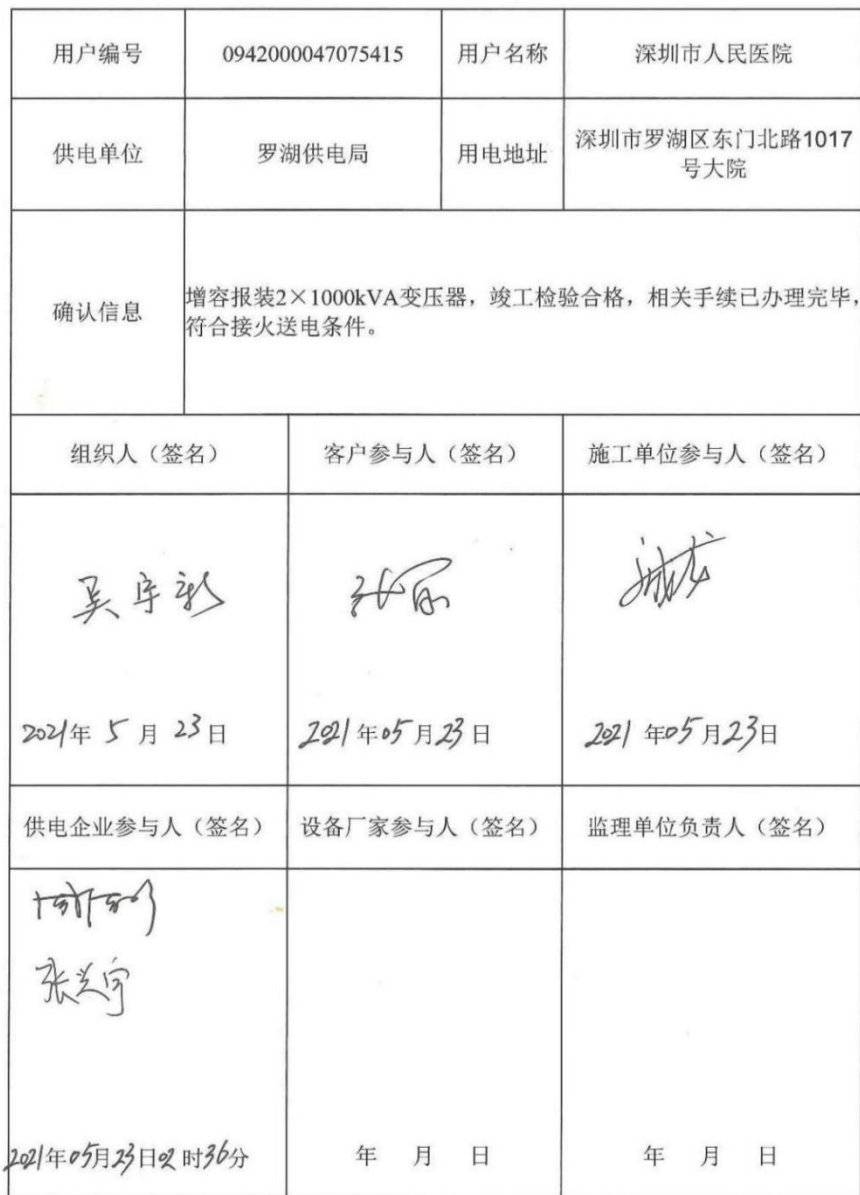 用户编号 0942000047075415 用户名称 深圳市人民医院
供电单位 罗湖供电局 用电地址 深圳市罗湖区东门北路1017
号大院
确认信息 增容报装2×1000kVA变压器，竣工检验合格，相关手续已办理完毕，
符合接火送电条件。
组织人（签名） 客户参与人（签名） 施工单位参与人（签名）
吴宇新
2021年 5 月 23 日 2021 年05月23日 2021 年05月23日
供电企业参与人（签名） 设备厂家参与人（签名） 监理单位负责人（签名）
张兴宇
2021年05月23日02时36分 年 月 日 年 月 日